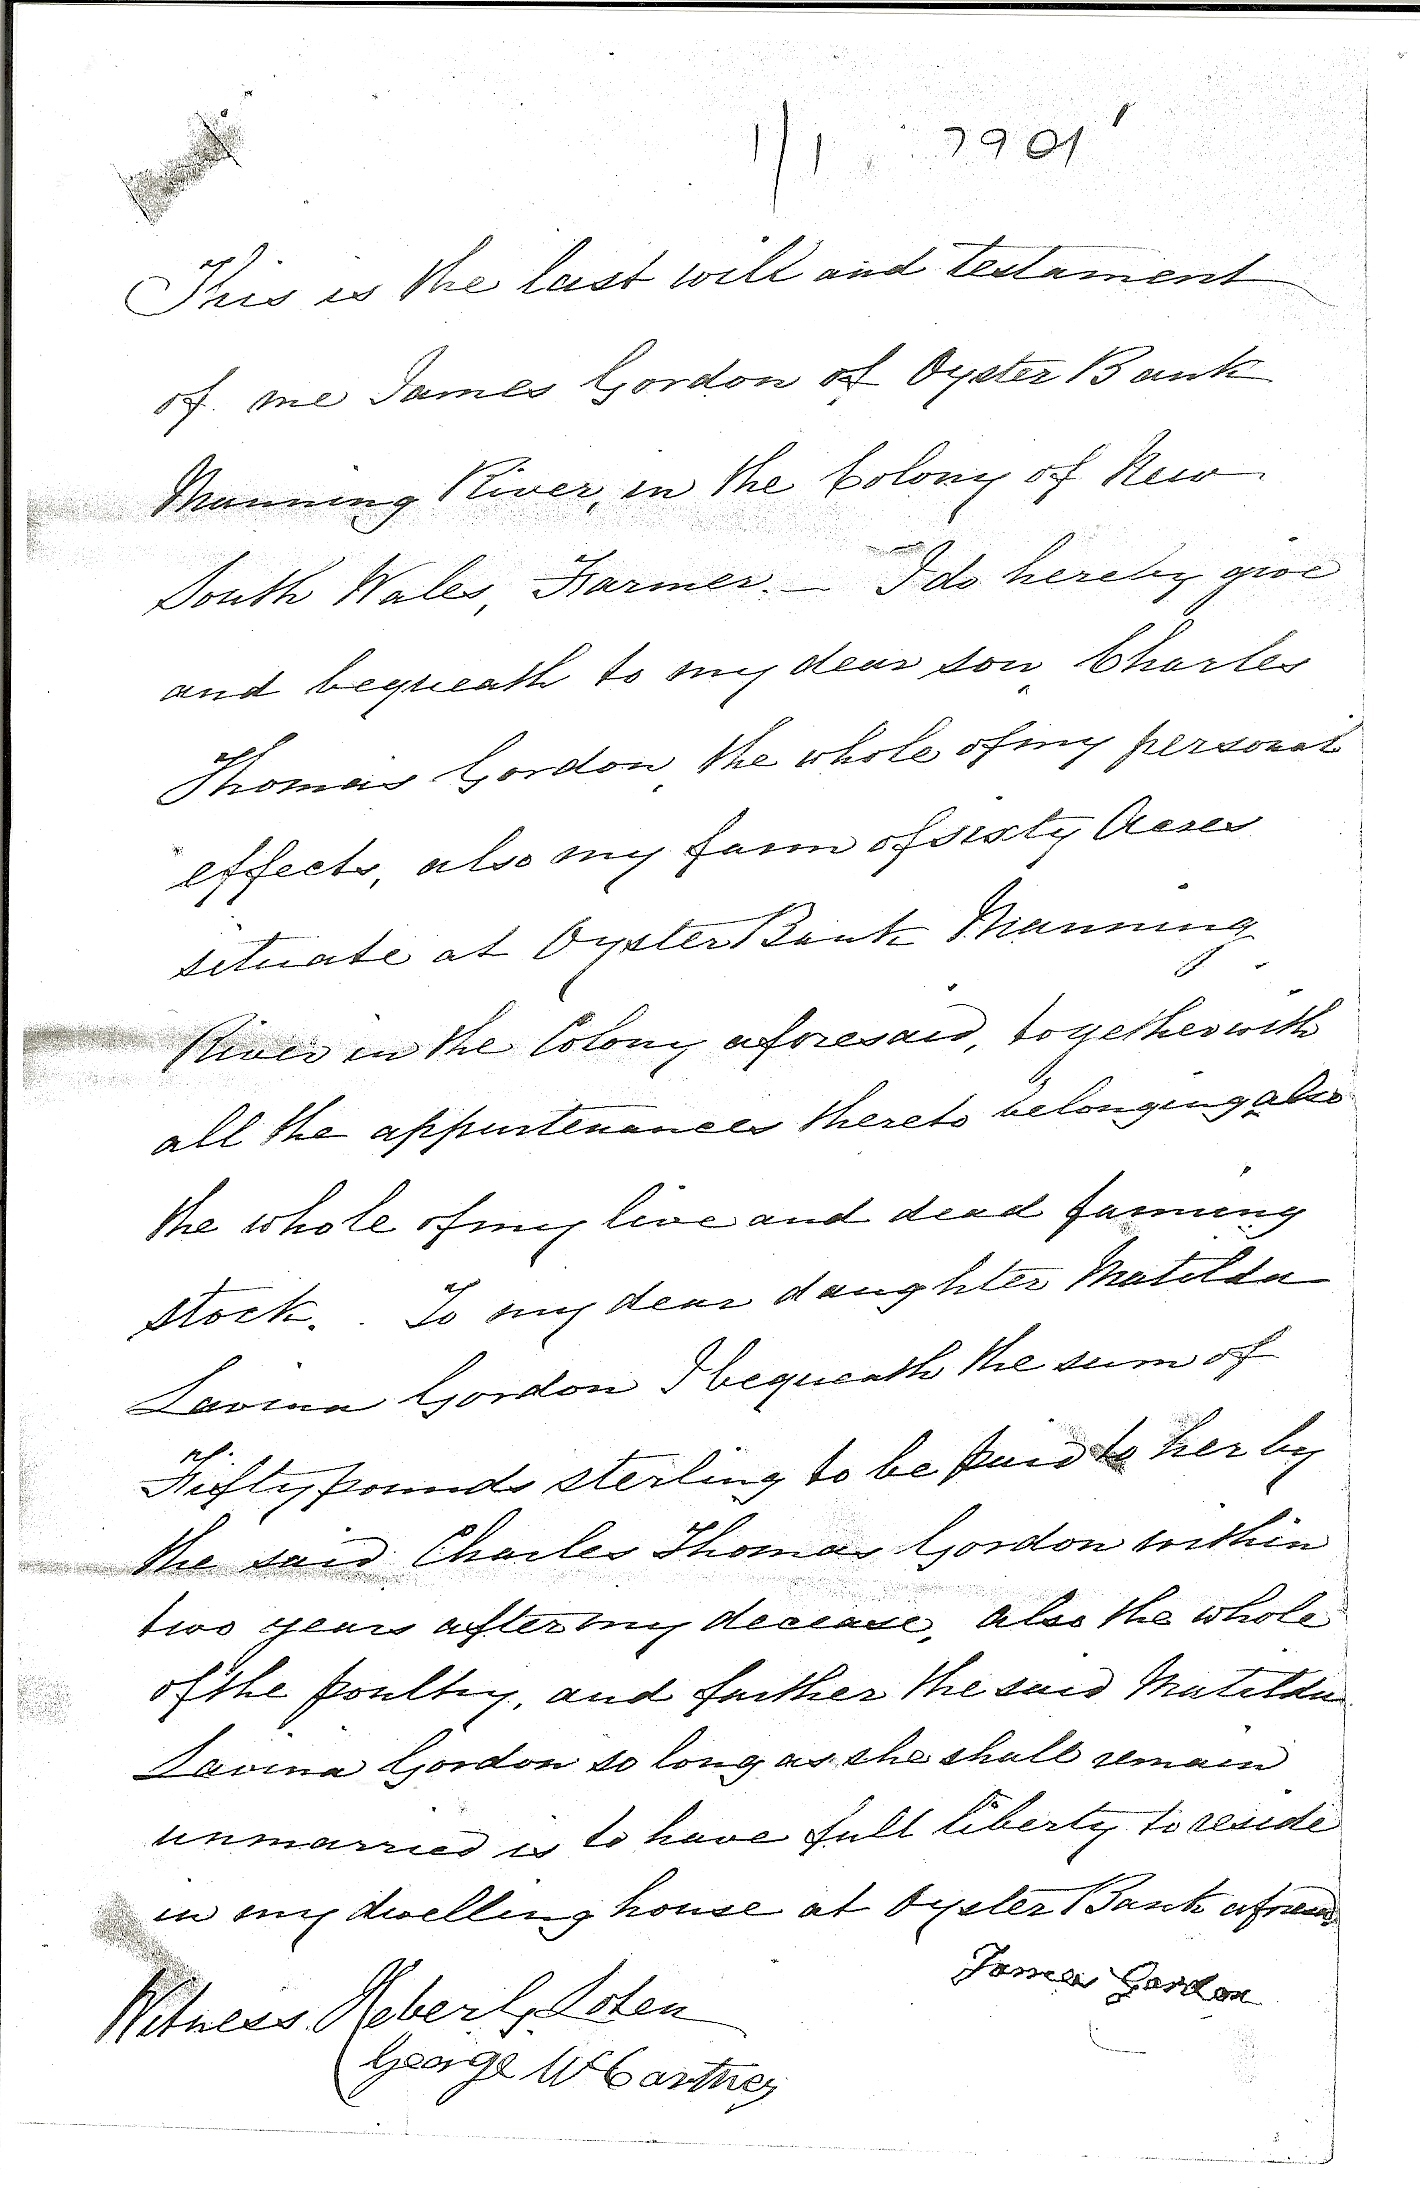 1/1 7901
This is the last will and testament
of me James Gordon of Oyster Bank
Manning River, in the Colony of New
South Wales, Farmer. — I do hereby give
and bequeath to my dear son, Charles
Thomas Gordon, the whole of my personal
effects, also my farm of sixty Acres
situate at Oyster Bank Manning
River in the Colony aforesaid, together with
all the appurtenances thereto belonging also
the whole of my live and dead farming
stock. To my dear daughter Matilda
Lavina Gordon I bequeath the sum of
Fifty pounds sterling to be paid to her by
the said Charles Thomas Gordon within
two years after my decease, also the whole
of the poultry, and further the said Matilda
Lavina Gordon so long as she shall remain
unmarried is to have full liberty to reside
in my dwelling house at Oyster Bank aforesaid
James Gordon
Witness Heber G
George McCartney